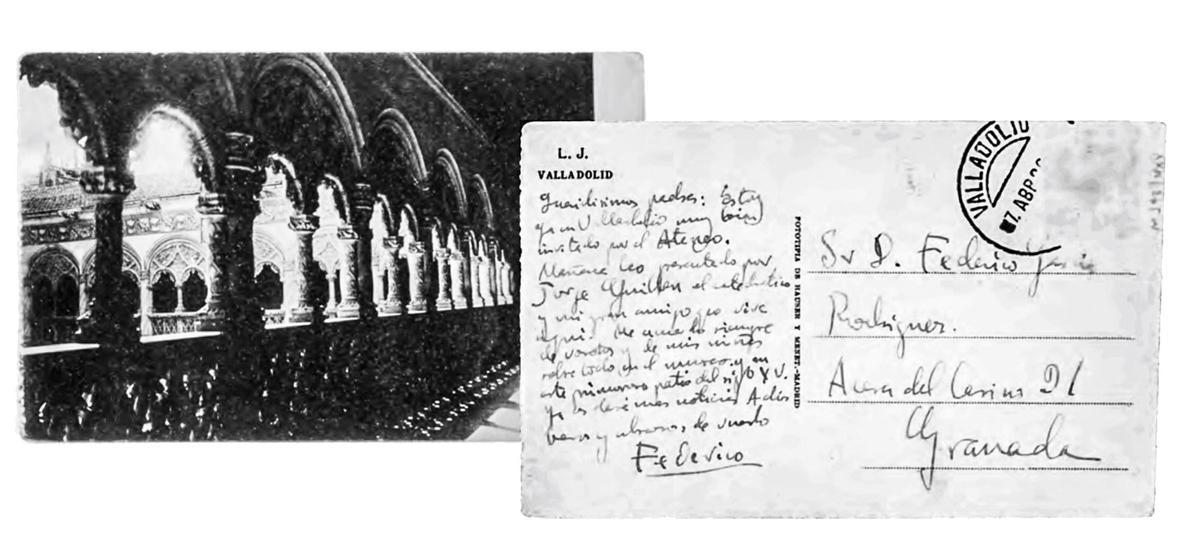 L. J.
VALLADOLID
Queridisimos padres: Estoy
ya en Valladolid muy bien
invitado por el Ateneo.
Mañana leo presentado por
Jorge Guillen el catedratico
y mi gran amigo que vive
aqui. Me acuerdo siempre
de vosotros y de mis niñas
sobre todo en el museo y en
este primoroso patio del siglo XV.
Ya os daré mas noticias Adios
besos y abrazos, de vuestro
Federico
FOTOTIPIA DE HAUSER Y MENET.-MADRID
VALLADOLID
7. ABR
Sr D. Federico García
Rodriguez.
Acera del Casino 31
Granada